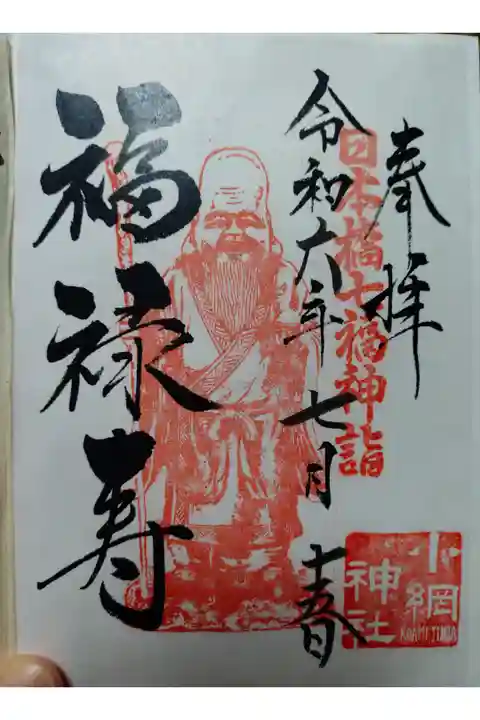 奉拝
日本橋七福神詣
令和六年七月十五日
福禄寿
小網
神社
KOAMI JINJA